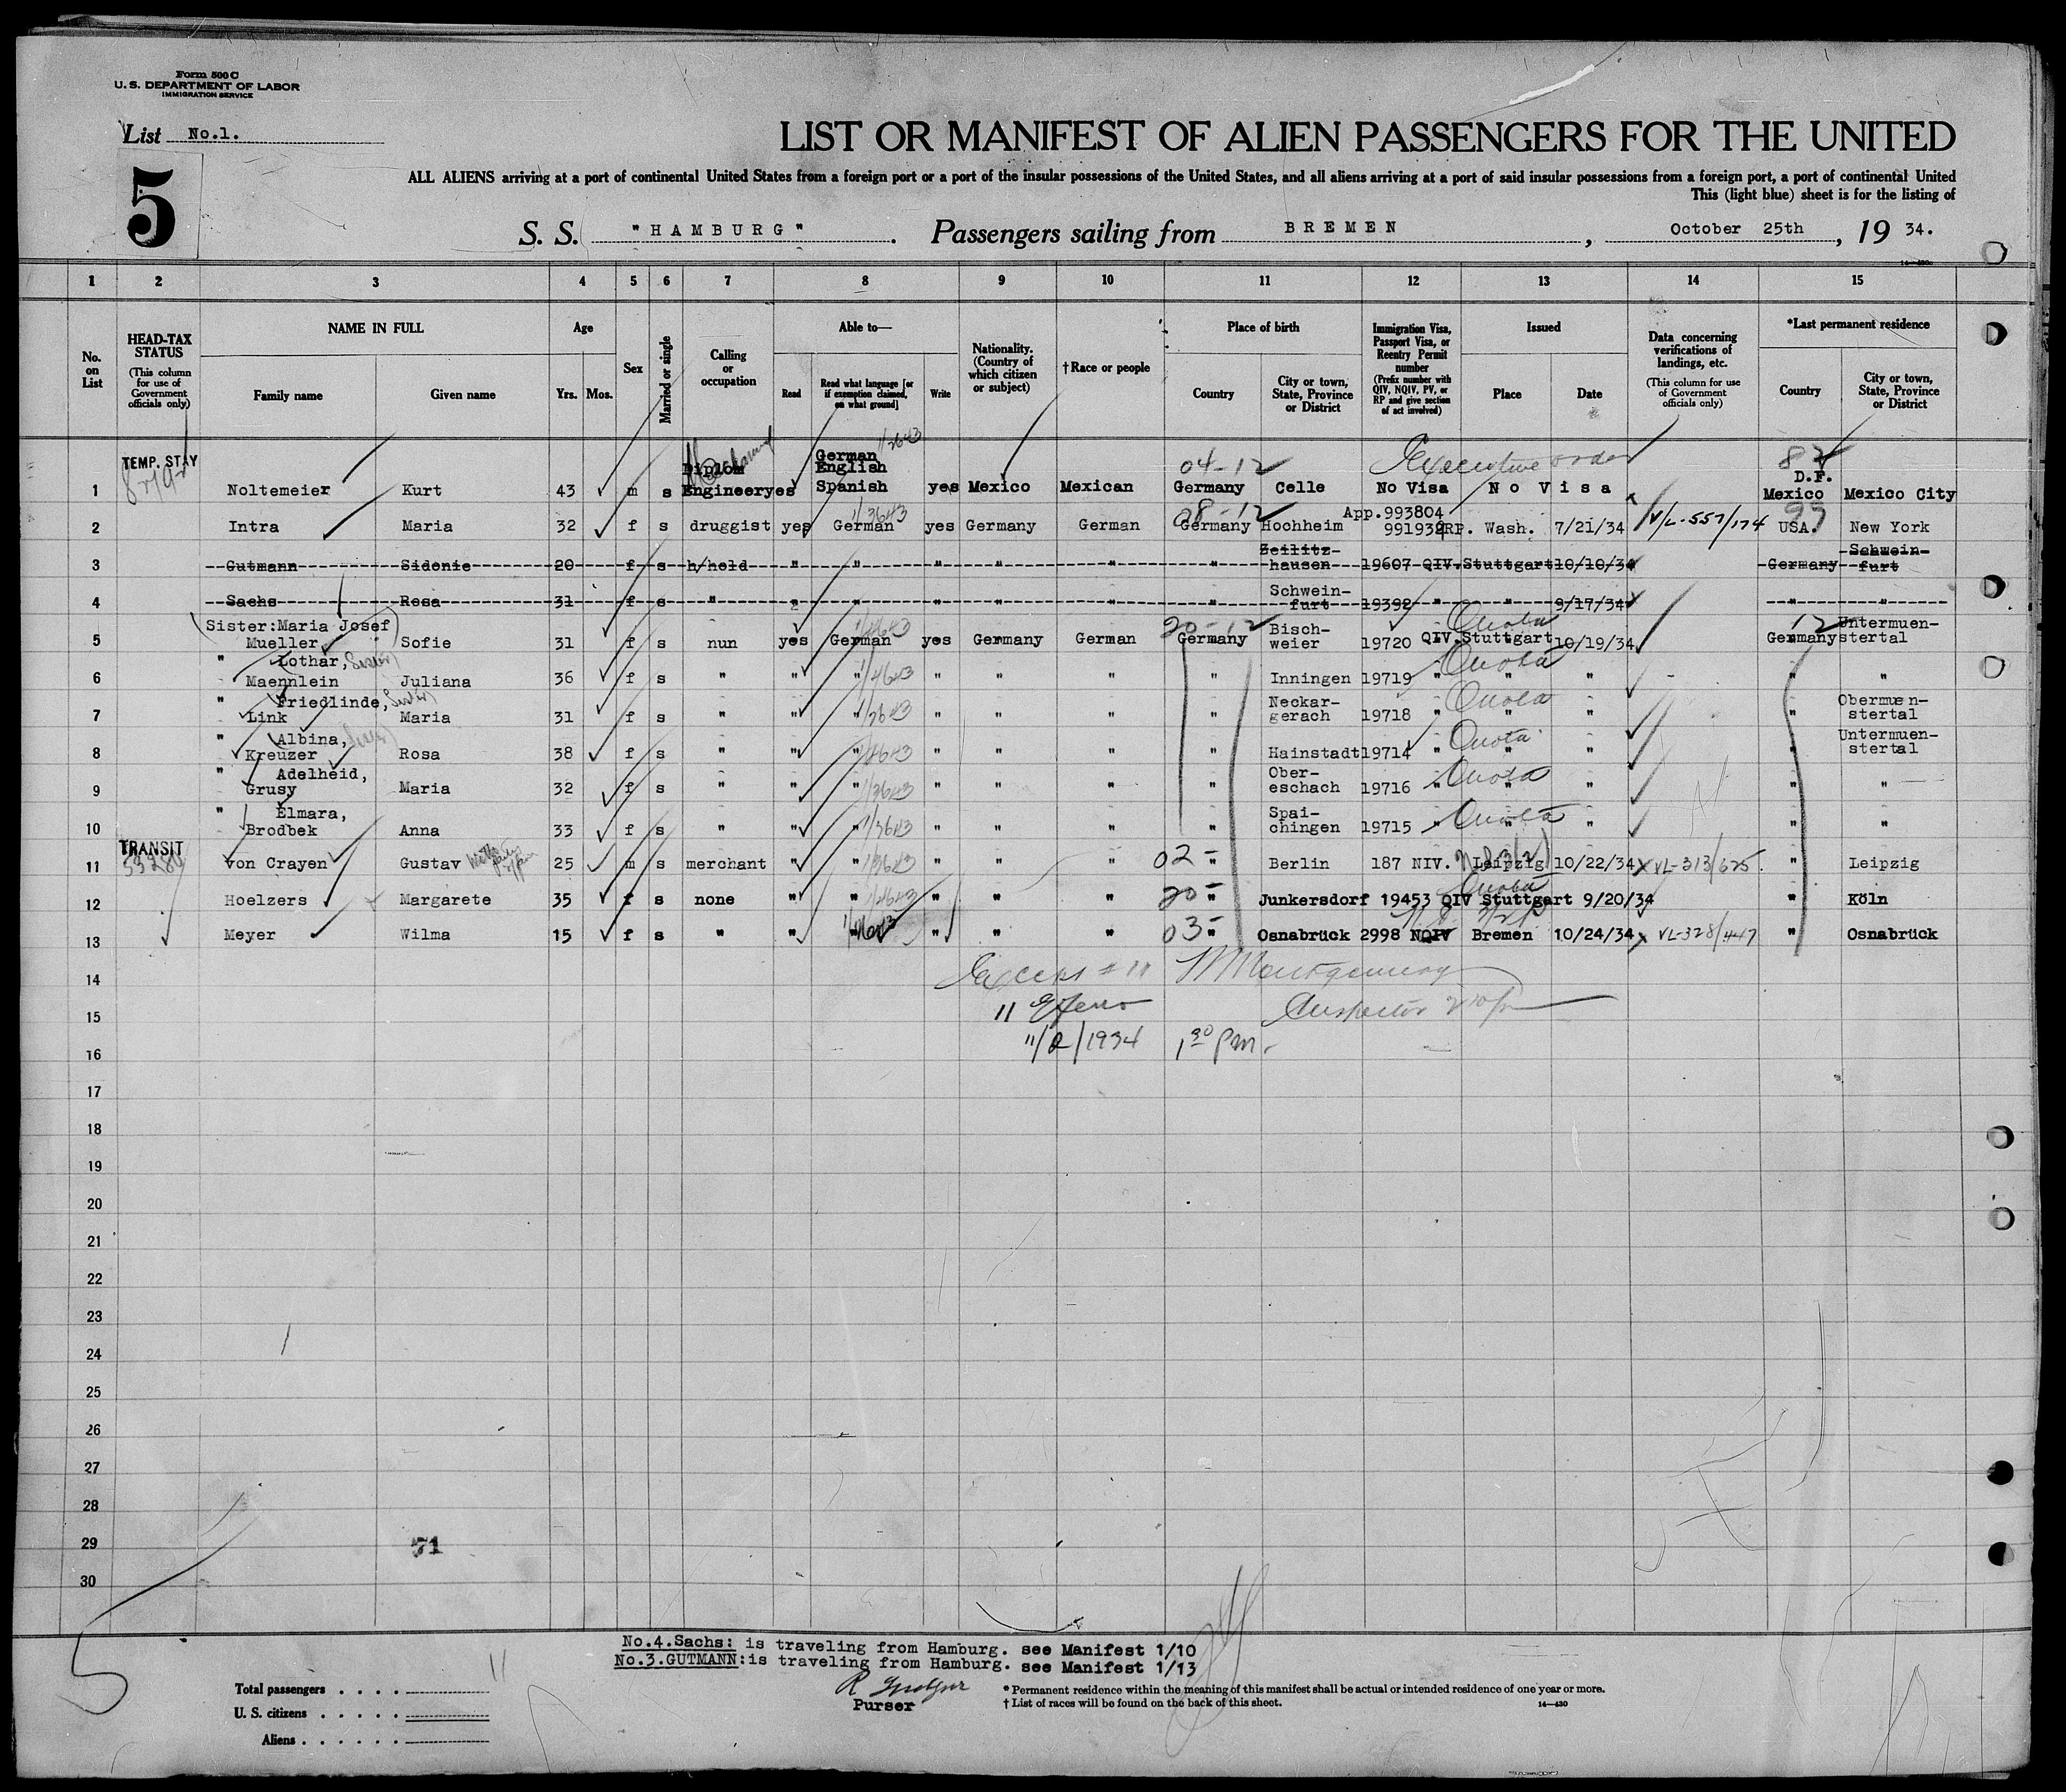 Form 500 C
U. S. DEPARTMENT OF LABOR
IMMIGRATION SERVICE
List No.1.
5
LIST OR MANIFEST OF ALIEN PASSENGERS FOR THE UNITED
ALL ALIENS arriving at a port of continental United States from a foreign port or a port of the insular possessions of the United States, and all aliens arriving at a port of said insular possessions from a foreign port, a port of continental United
This (light blue) sheet is for the listing of
S. S. "HAMBURG". Passengers sailing from BREMEN, October 25th, 19 34.
14—430
1 2 3 4 5 6 7 8 9 10 11 12 13 14 15
No. on List
HEAD-TAX STATUS
(This column for use of Government officials only)
NAME IN FULL
Family name Given name
Age
Yrs. Mos.
Sex
Married or single
Calling or occupation
Able to—
Read
Read what language [or if exemption claimed, on what ground]
Write
Nationality. (Country of which citizen or subject)
†Race or people
Place of birth
Country
City or town, State, Province or District
Immigration Visa, Passport Visa, or Reentry Permit number
(Prefix number with QIV, NQIV, PV, or RP and give section of act involved)
Issued
Place Date
Data concerning verifications of landings, etc.
(This column for use of Government officials only)
*Last permanent residence
Country
City or town, State, Province or District
TEMP. STAY German 04-12 Executive order 82
Diplom English D.F.
1 Noltemeier Kurt 43 m s Engineer yes Spanish yes Mexico Mexican Germany Celle No Visa No Visa Mexico Mexico City
08-12 App.993804 99
2 Intra Maria 32 f s druggist yes German yes Germany German Germany Hochheim 991932 RP. Wash. 7/21/34 V/L-557/174 USA. New York
Zeilitz- Schwein-
3 Gutmann Sidonie 20 f s h/hold " " " " " " hausen 19607 QIV. Stuttgart 10/10/34 Germany furt
Schwein-
4 Sachs Rosa 31 f s " " " " " " " furt 19392 " " 9/17/34 " "
Sister: Maria Josef 20-12 Bisch- Quota 12 Untermuen-
5 Mueller Sofie 31 f s nun yes German yes Germany German Germany weier 19720 QIV. Stuttgart 10/19/34 Germany stertal
" Lothar, Sister Quota
6 Maennlein Juliana 36 f s " " " " " " " Inningen 19719 " " " " "
" Friedlinde, Sister Neckar- Quota Obermuen-
7 Link Maria 31 f s " " " " " " " gerach 19718 " " " " stertal
" Albina, Quota Untermuen-
8 Kreuzer Rosa 38 f s " " " " " " " Hainstadt 19714 " " " " stertal
" Adelheid, Ober- Quota
9 Grusy Maria 32 f s " " " " " " " eschach 19716 " " " " "
" Elmara, Spai- Quota
10 Brodbek Anna 33 f s " " " " " " " chingen 19715 " " " " "
TRANSIT
11 von Crayen Gustav 25 m s merchant " " " " " 02- " Berlin 187 NIV. Leipzig 10/22/34 VL-313/625 " Leipzig
Quota
12 Hoelzers Margarete 35 f s none " " " " " 20- " Junkersdorf 19453 QIV Stuttgart 9/20/34 " Köln
13 Meyer Wilma 15 f s " " " " " " 03- " Osnabrück 2998 NQIV Bremen 10/24/34 VL-328/447 " Osnabrück
14 Except #11 Montgomery
15 11 Inspector
16 11/2/1934 1 30 pm.
17
18
19
20
21
22
23
24
25
26
27
28
29 71
30
No.4.Sachs: is traveling from Hamburg. see Manifest 1/10
No.3.GUTMANN: is traveling from Hamburg. see Manifest 1/13
5
11
Total passengers
U. S. citizens
Aliens
Purser
* Permanent residence within the meaning of this manifest shall be actual or intended residence of one year or more.
† List of races will be found on the back of this sheet.
14—430